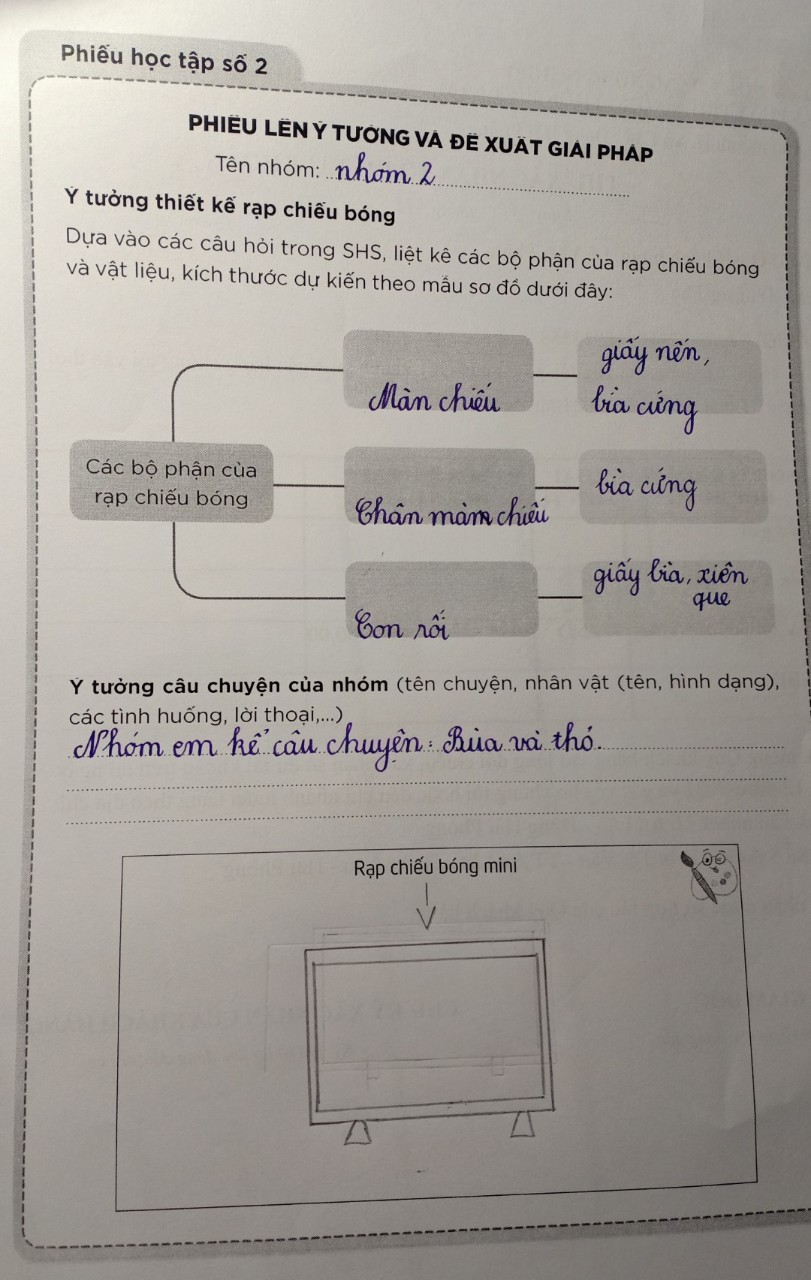 Phiếu học tập số 2
PHIẾU LÊN Ý TƯỞNG VÀ ĐỀ XUẤT GIẢI PHÁP
Tên nhóm: nhóm 2
Ý tưởng thiết kế rạp chiếu bóng
Dựa vào các câu hỏi trong SHS, liệt kê các bộ phận của rạp chiếu bóng
và vật liệu, kích thước dự kiến theo mẫu sơ đồ dưới đây:
giấy nến,
Màn chiếu
bìa cứng
Các bộ phận của
rạp chiếu bóng
bìa cứng
Chân màn chiếu
giấy bìa, xiên
que
Con rối
Ý tưởng câu chuyện của nhóm (tên chuyện, nhân vật (tên, hình dạng),
các tình huống, lời thoại,...)
Nhóm em kể câu chuyện: Rùa và thỏ.
Rạp chiếu bóng mini